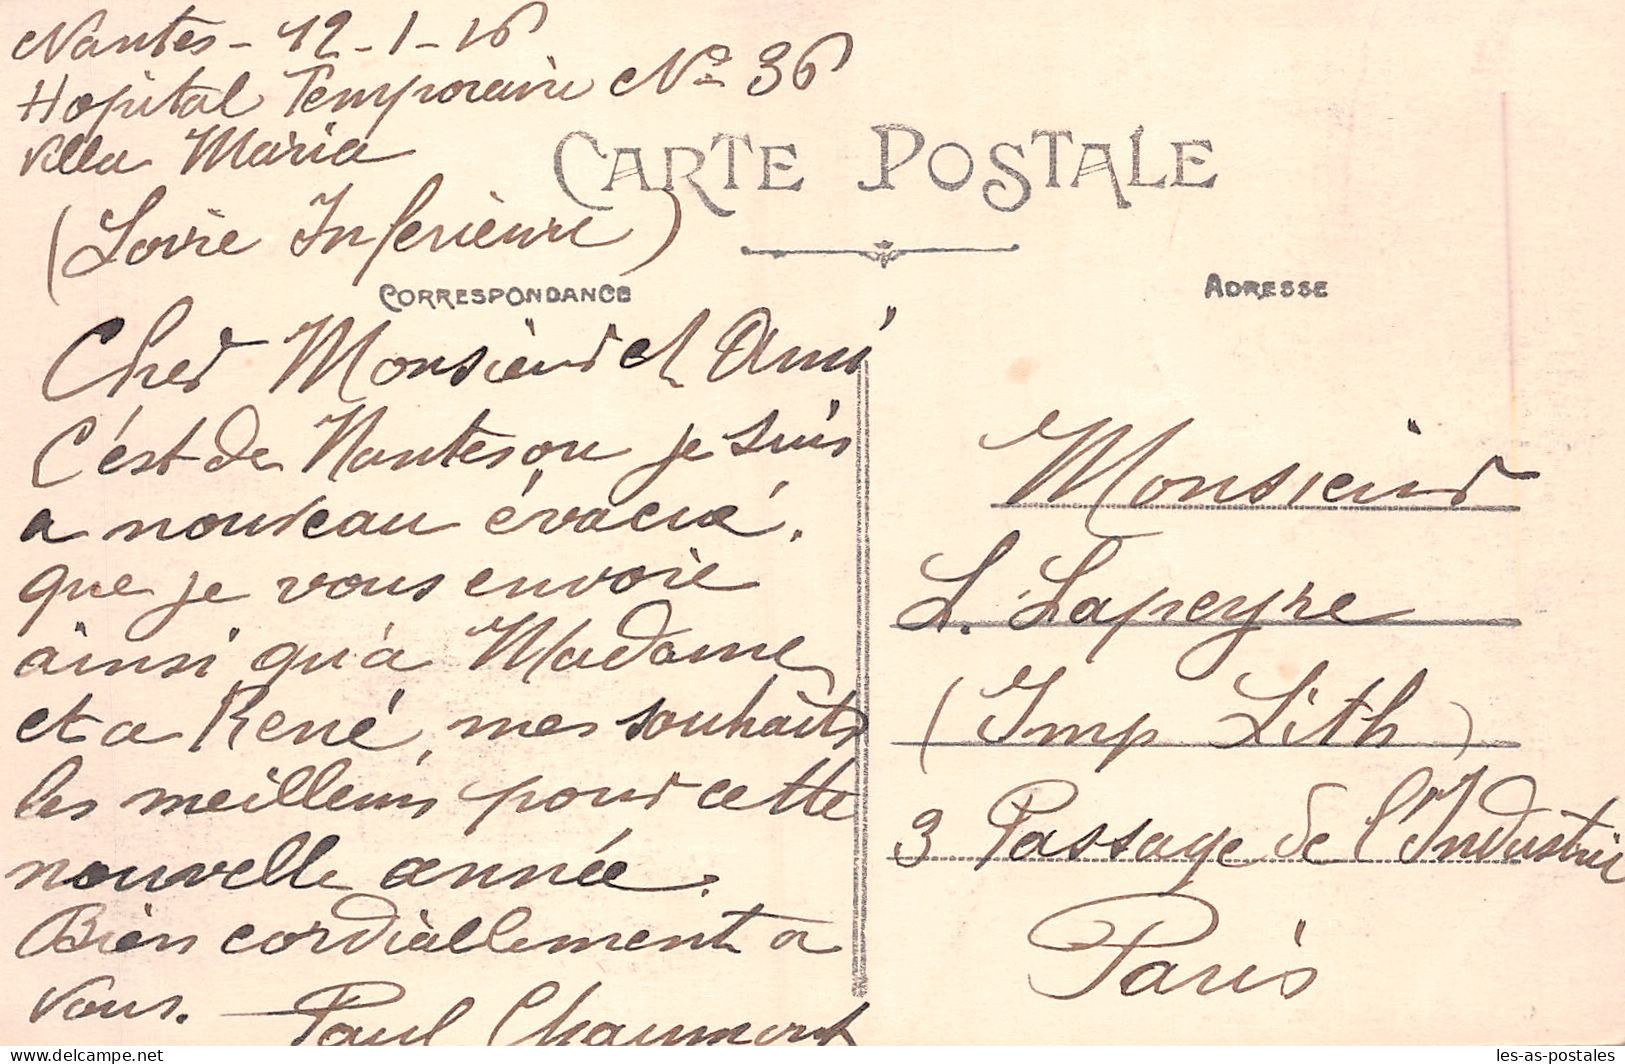 Nantes - 12 - 1 - 16
Hopital Temporaire No 36
Villa Maria
(Loire Inferieure)
CARTE POSTALE
CORRESPONDANCE
ADRESSE
Cher Monsieur et Ami
C'est de Nantes ou je suis
a nouveau évacué,
que je vous envoie
ainsi qu'a Madame
et a René, mes souhaits
les meilleurs pour cette
nouvelle année.
Bien cordiallement a
vous. Paul Chaumont
Monsieur
L. Lapeyre
(Imp Lith)
3 Passage de l'Industrie
Paris
delcampe.net
les-as-postales